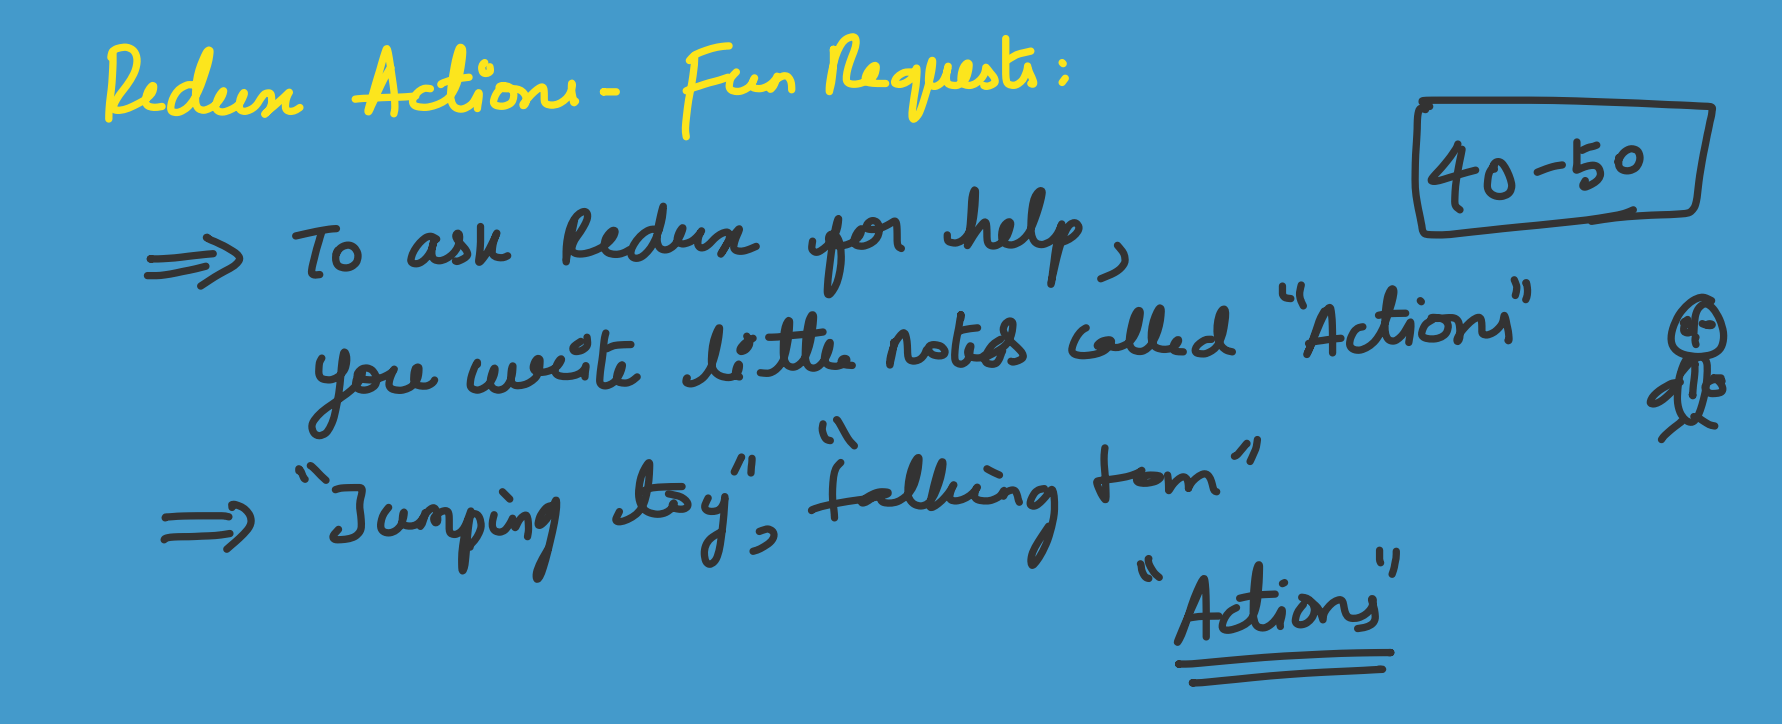 Redux Actions - Fun Requests:
40-50
⇒ To ask Redux for help,
you write little notes called "Actions"
⇒ "Jumping toy", "talking tom"
"Actions"